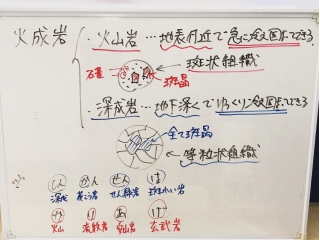 火成岩
・火山岩…地表付近で急に冷え固まってできる
石基
斑晶
斑状組織
・深成岩…地下深くでゆっくり冷え固まってできる
全て斑晶
等粒状組織
しん かん せん は
深成 花こう岩 せん緑岩 斑れい岩
か り あ げ
火山 流紋岩 安山岩 玄武岩